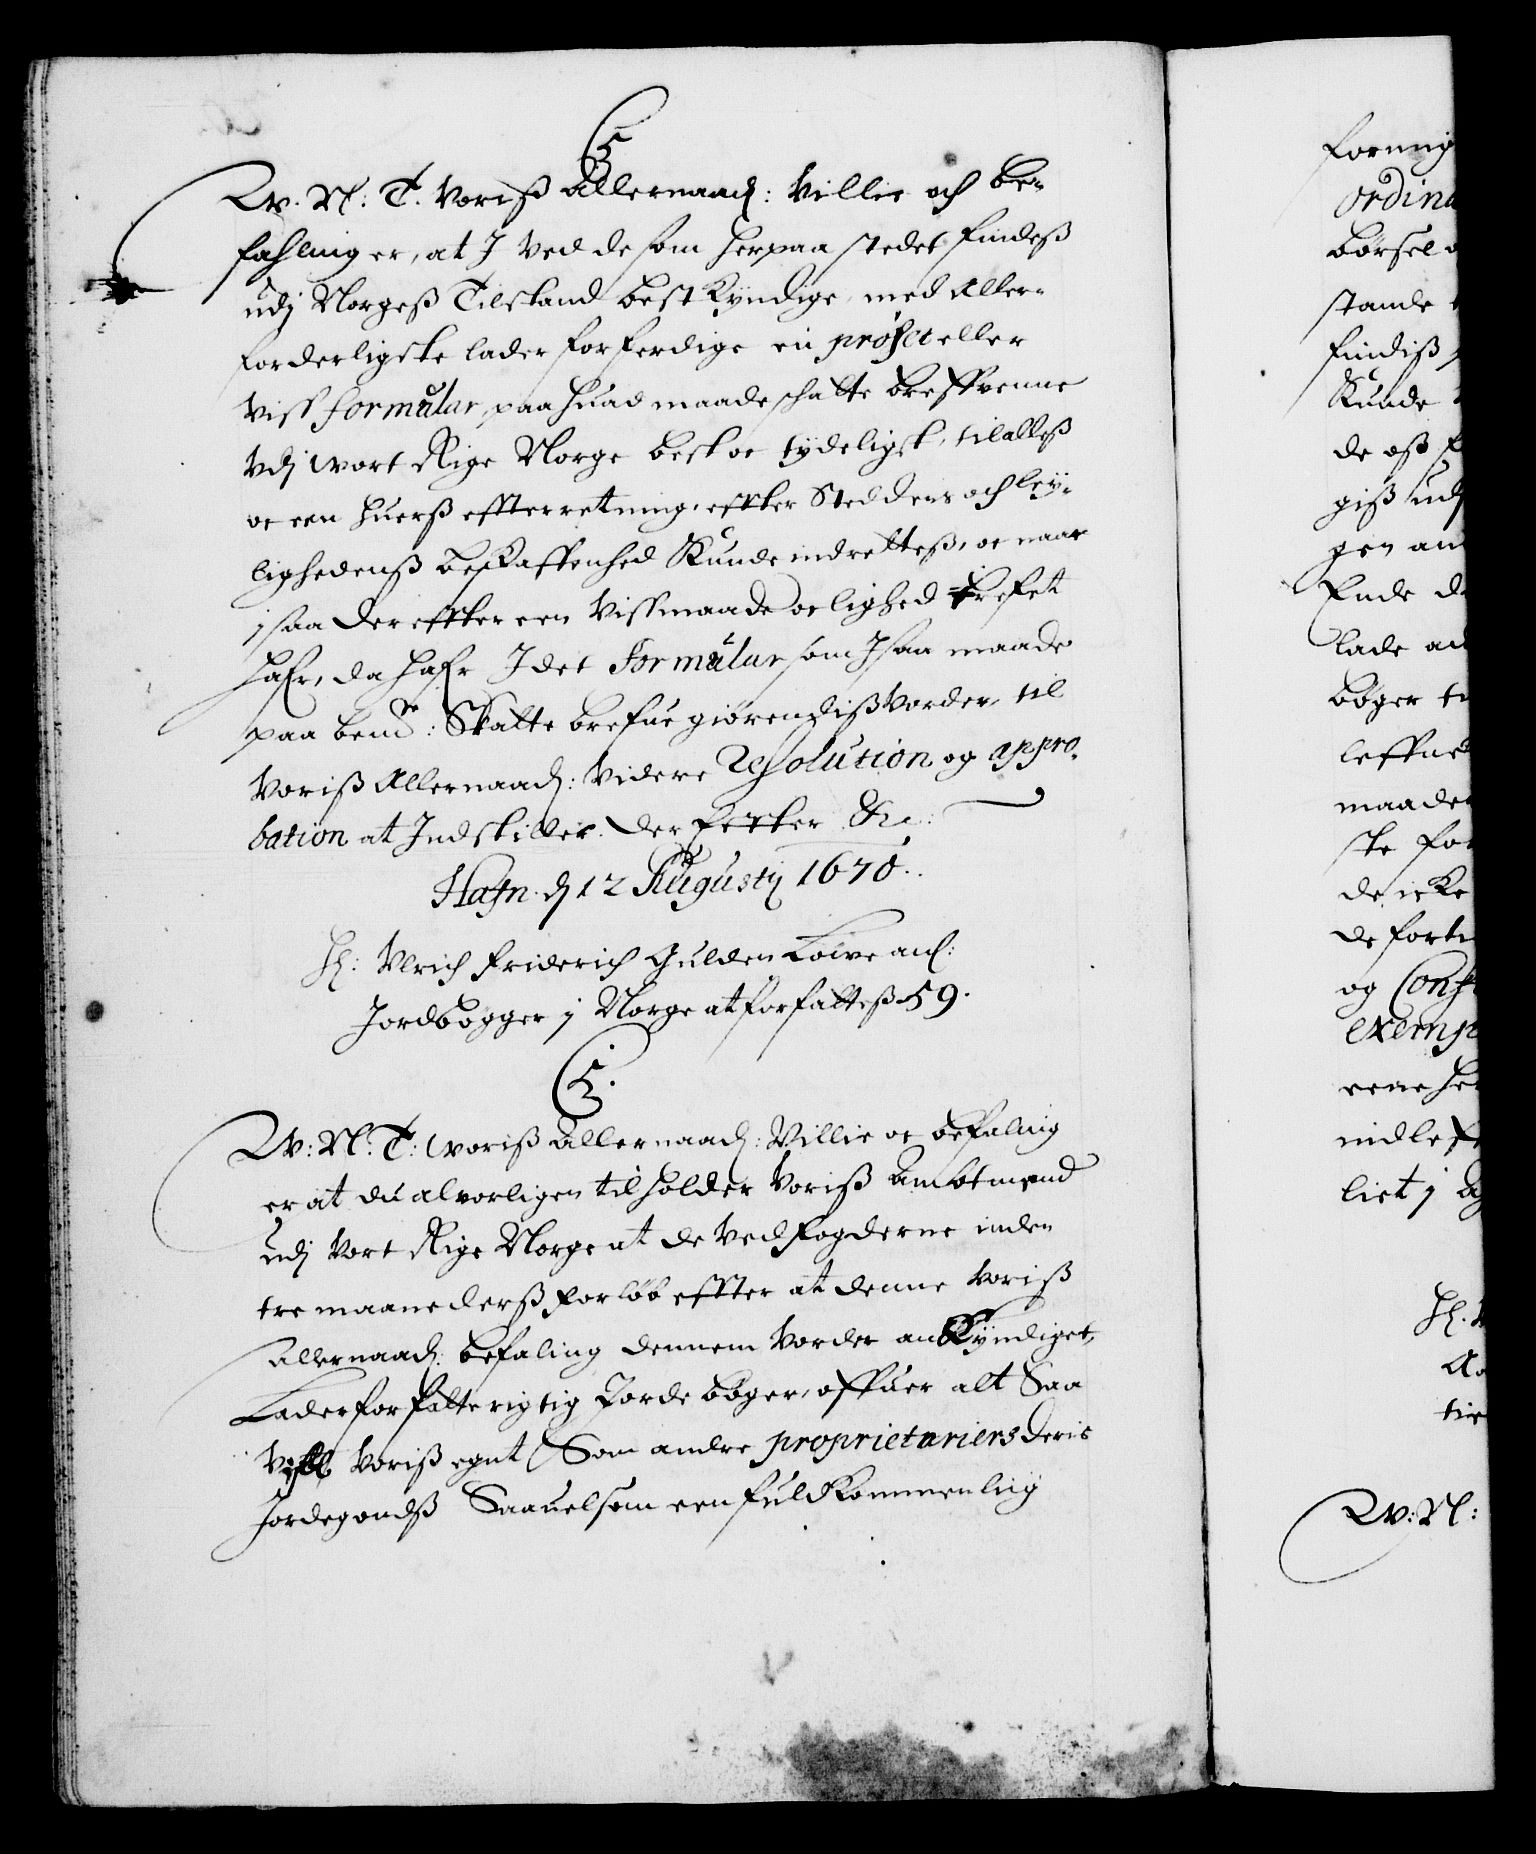 C5
W. N: T. Voriß Allernaad: Villie och be-
fahling er, at I Ved de som her paa stedet findeß
udj Norgeß Tilstand best Kyndige, med Aller-
forderligste lader forferdige en project eller
Viss formular, paa huad maade schatte breffvenne
Udj wort Rige Norge best oc tydeligst, til alleß
oc een huerß effterretning, effter Steddens och ley-
lighedenß beskaffenhed Kunde indretteß, oc naar
j saa der effter een Viss maade oc lighed trefet
hafr, da hafr I det formular som I saa maade
paa bemte: Skatte brefue giørendiß Vorder, til
Voriß Allernaad: Videre Resolution og appro-
bation at Indskicke. Der Effter &c:
Hafn. dj 12 Augustij 1670.
Hl: Ulrich Friderich Gulden Løwe anl:
Jordbogger j Norge at forfatteß 59.
C5.
W: N: T: woriß Allernaad: Villie oc befaling
er at du alvorligen tilholder Voriß Ambtmend
udj Vort Rige Norge at de Ved fogderne inden
tre maanederß forløb effter at denne Voriß
Allernaad: befaling dennem Vorder an Kyndiget,
Lader forfatte rigtig Jordebøger, offuer alt Saa
Vell Voriß egnt Som andre proprietariers deris
Jordegodß Saauel som een fuldkommenlig
forning
ordina
børsel
stande
findiß
Kunde
de oß
giß udj
gen an
Ende d
lade an
bøger ti
leffue
maader
ste for
de icke
de fort
og Cons
exemp
eene he
indlef
liet j
Hl.
tie
W: N: